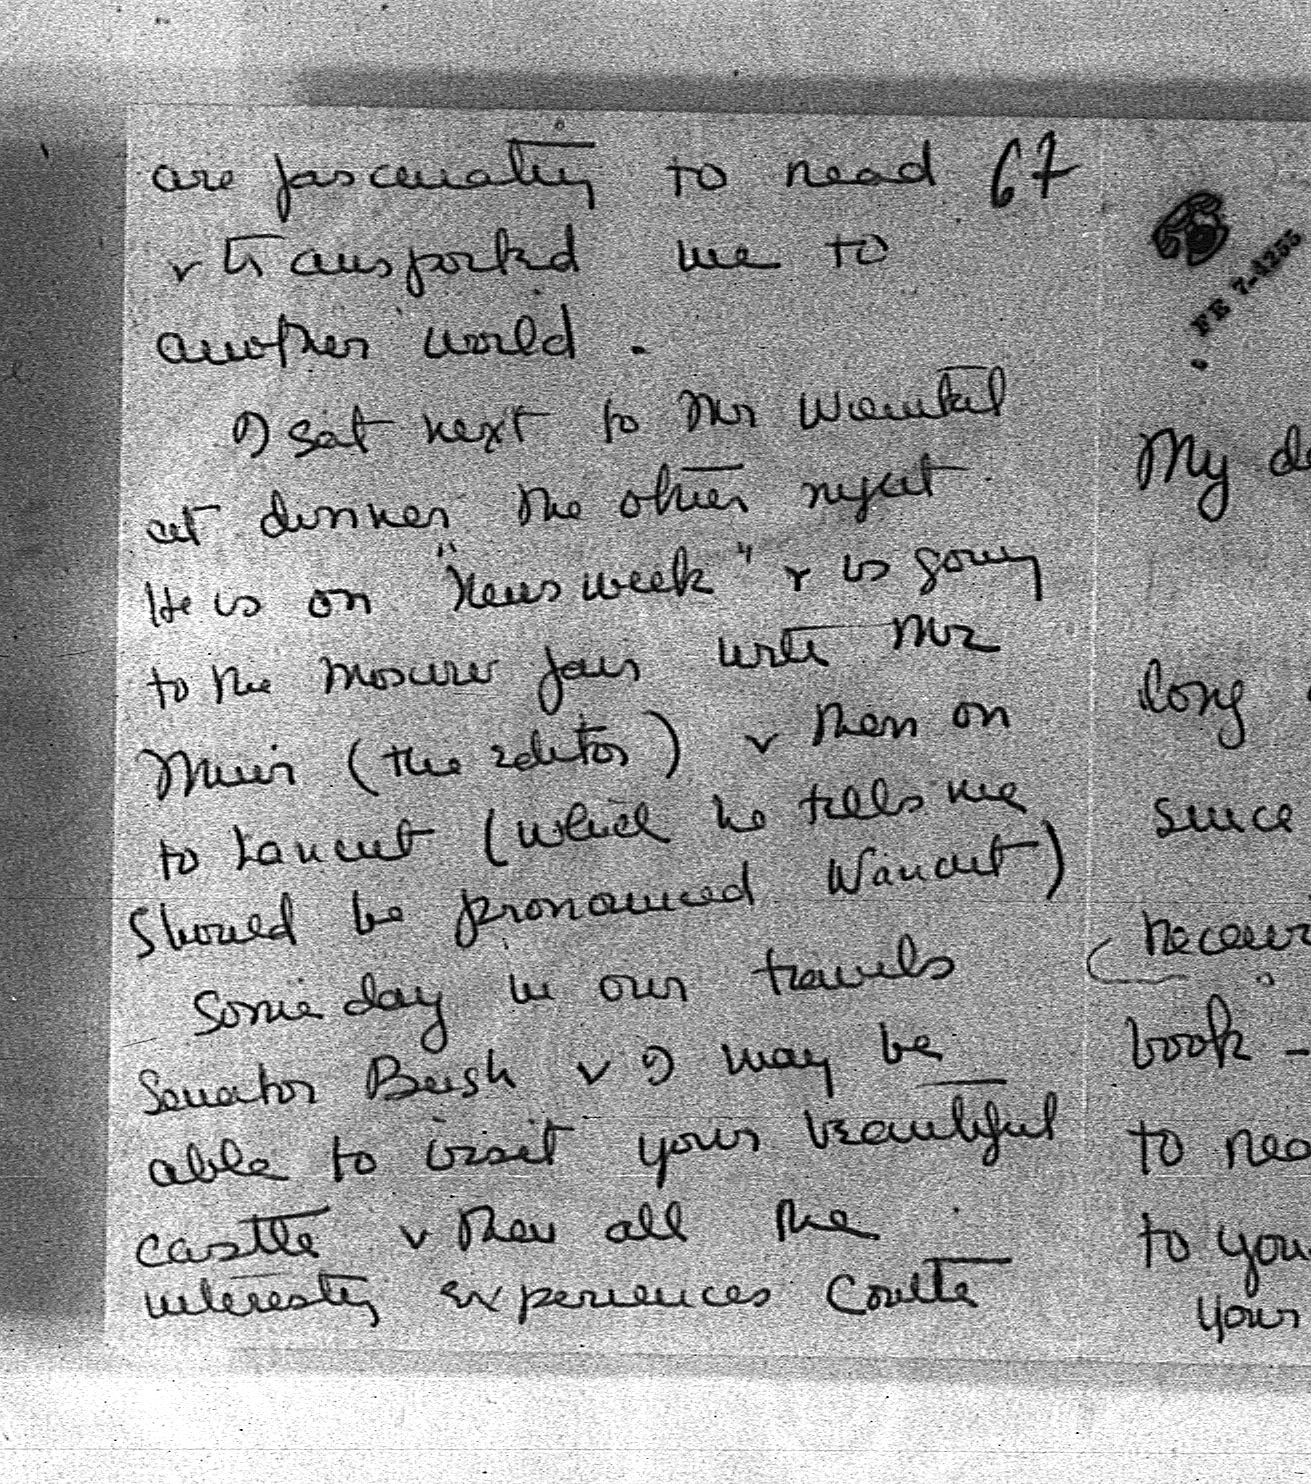 are fascinating to read 67
& transported me to
another world.
I sat next to Mr Weintal
at dinner the other night.
He is on "Newsweek" & is going
to the Moscow fair with Mr
Muir (the editor) & then on
to Lancut (which he tells me
should be pronounced Wancut)
Some day in our travels
Senator Bush & I may be
able to visit your beautiful
castle & then all the
interesting experiences Comte
FE 7-4255
My
long
since
book -
to
to you
your